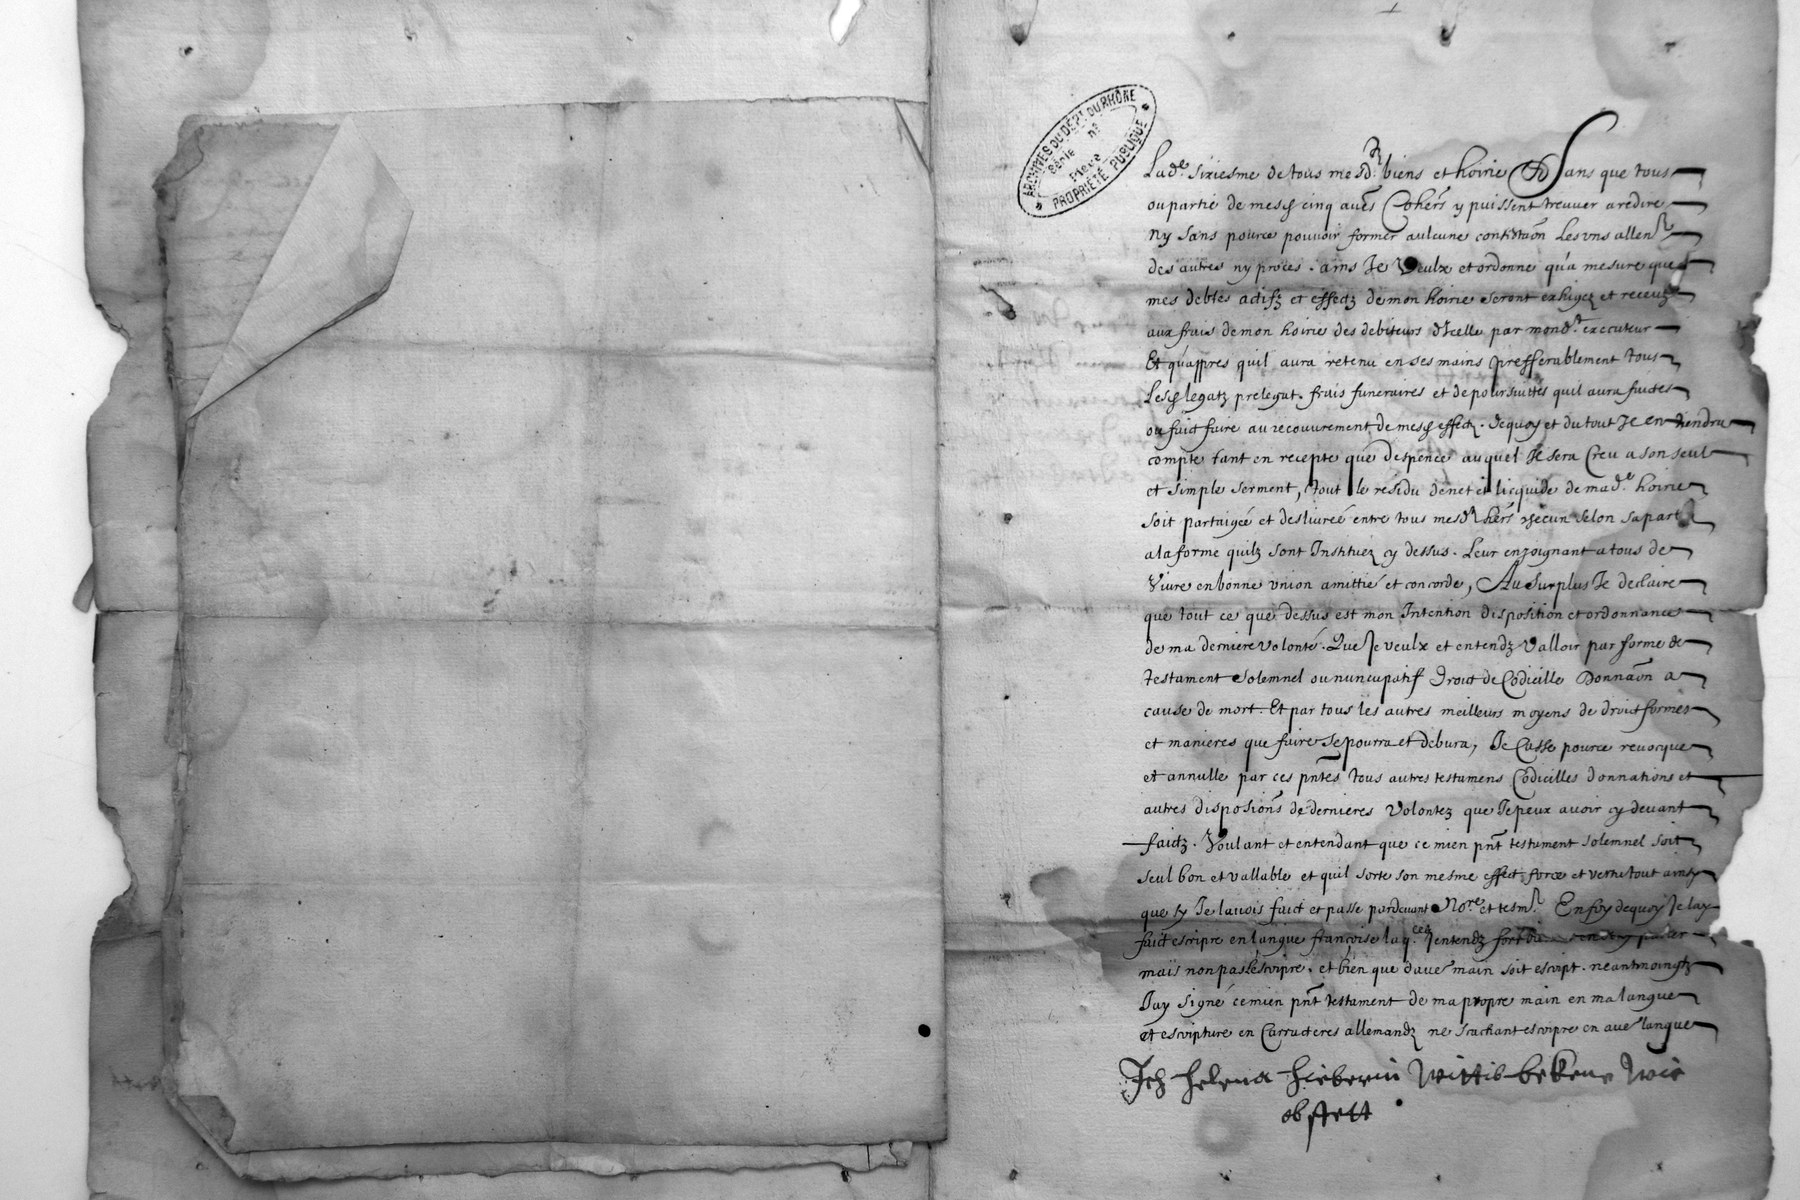 ARCHIVES DU DÉPT. DU RHÔNE
Série nº
Pièce
PROPRIÉTÉ PUBLIQUE
Lad.e sixiesme de tous mesd. biens et hoirie Sans que tous
ou partie de mesd cinq au͠es Coher͠s y puissent treuver a redire
ny sans pource pouvoir former aulcune Les uns allen
des autres ny proces. ains Je Veulx et ordonne qu'a mesure que
mes debtes actifz et effectz de mon hoirie seront exhigez et receuz
aux frais de mon hoirie des debiteurs d'Icelle par mond.t executeur
Et qu'appres quil aura retenu en ses mains prefferablement tous
Lesd legatz prelegat. frais funeraires et de poursuittes quil aura faictes
ou faict faire au recouvrement de mesd effectz. dequoy et du tout Je en tiendra
compte tant en recepte que despence auquel Je sera Creu a son seul
et simple serment, tout le residu denet et licquide de mad.e hoirie
soit partaigée et deslivrée entre tous mesd her͠s checun selon sa part
a la forme quilz sont Instituez cy dessus. Leur enjoignant a tous de
Vivre en bonne union amittié et concorde, Au surplus Je declaire
que tout ce que dessus est mon Intention disposition et ordonnance
de ma derniere volonté. Que Je veulx et entendz Valloir par forme de
testament solemnel ou nuncupatif droict de Codicille Donna͠on a
cause de mort. Et par tous les autres meilleurs moyens de droict formes
et manieres que faire se pourra et debvra, Je Casse pource revocque
et annulle par ces pn͠tes tous autres testamens Codicilles donnations et
autres disposion͠s de dernieres Volontez que Je peux avoir cy devant
faictz. Voulant et entendant que ce mien pn͠t testament solemnel soit
seul bon et vallable et quil sorte son mesme effect force et vertu tout ainsy
que sy Je lavois faict et passe pardevant No.re et tesm. En foy dequoy Je lay
faict escripre en langue françoise laq.elle Jentendz fort parler
mais non pas lescripre. et bien que d'au͠e main soit escript. neantmoingtz
Jay signé ce mien pn͠t testament de ma propre main en ma langue
et escripture en Carracteres allemandz ne scachant escripre en au͠e langue
Ich helena hieberin Wittib bekene Wie
obstett